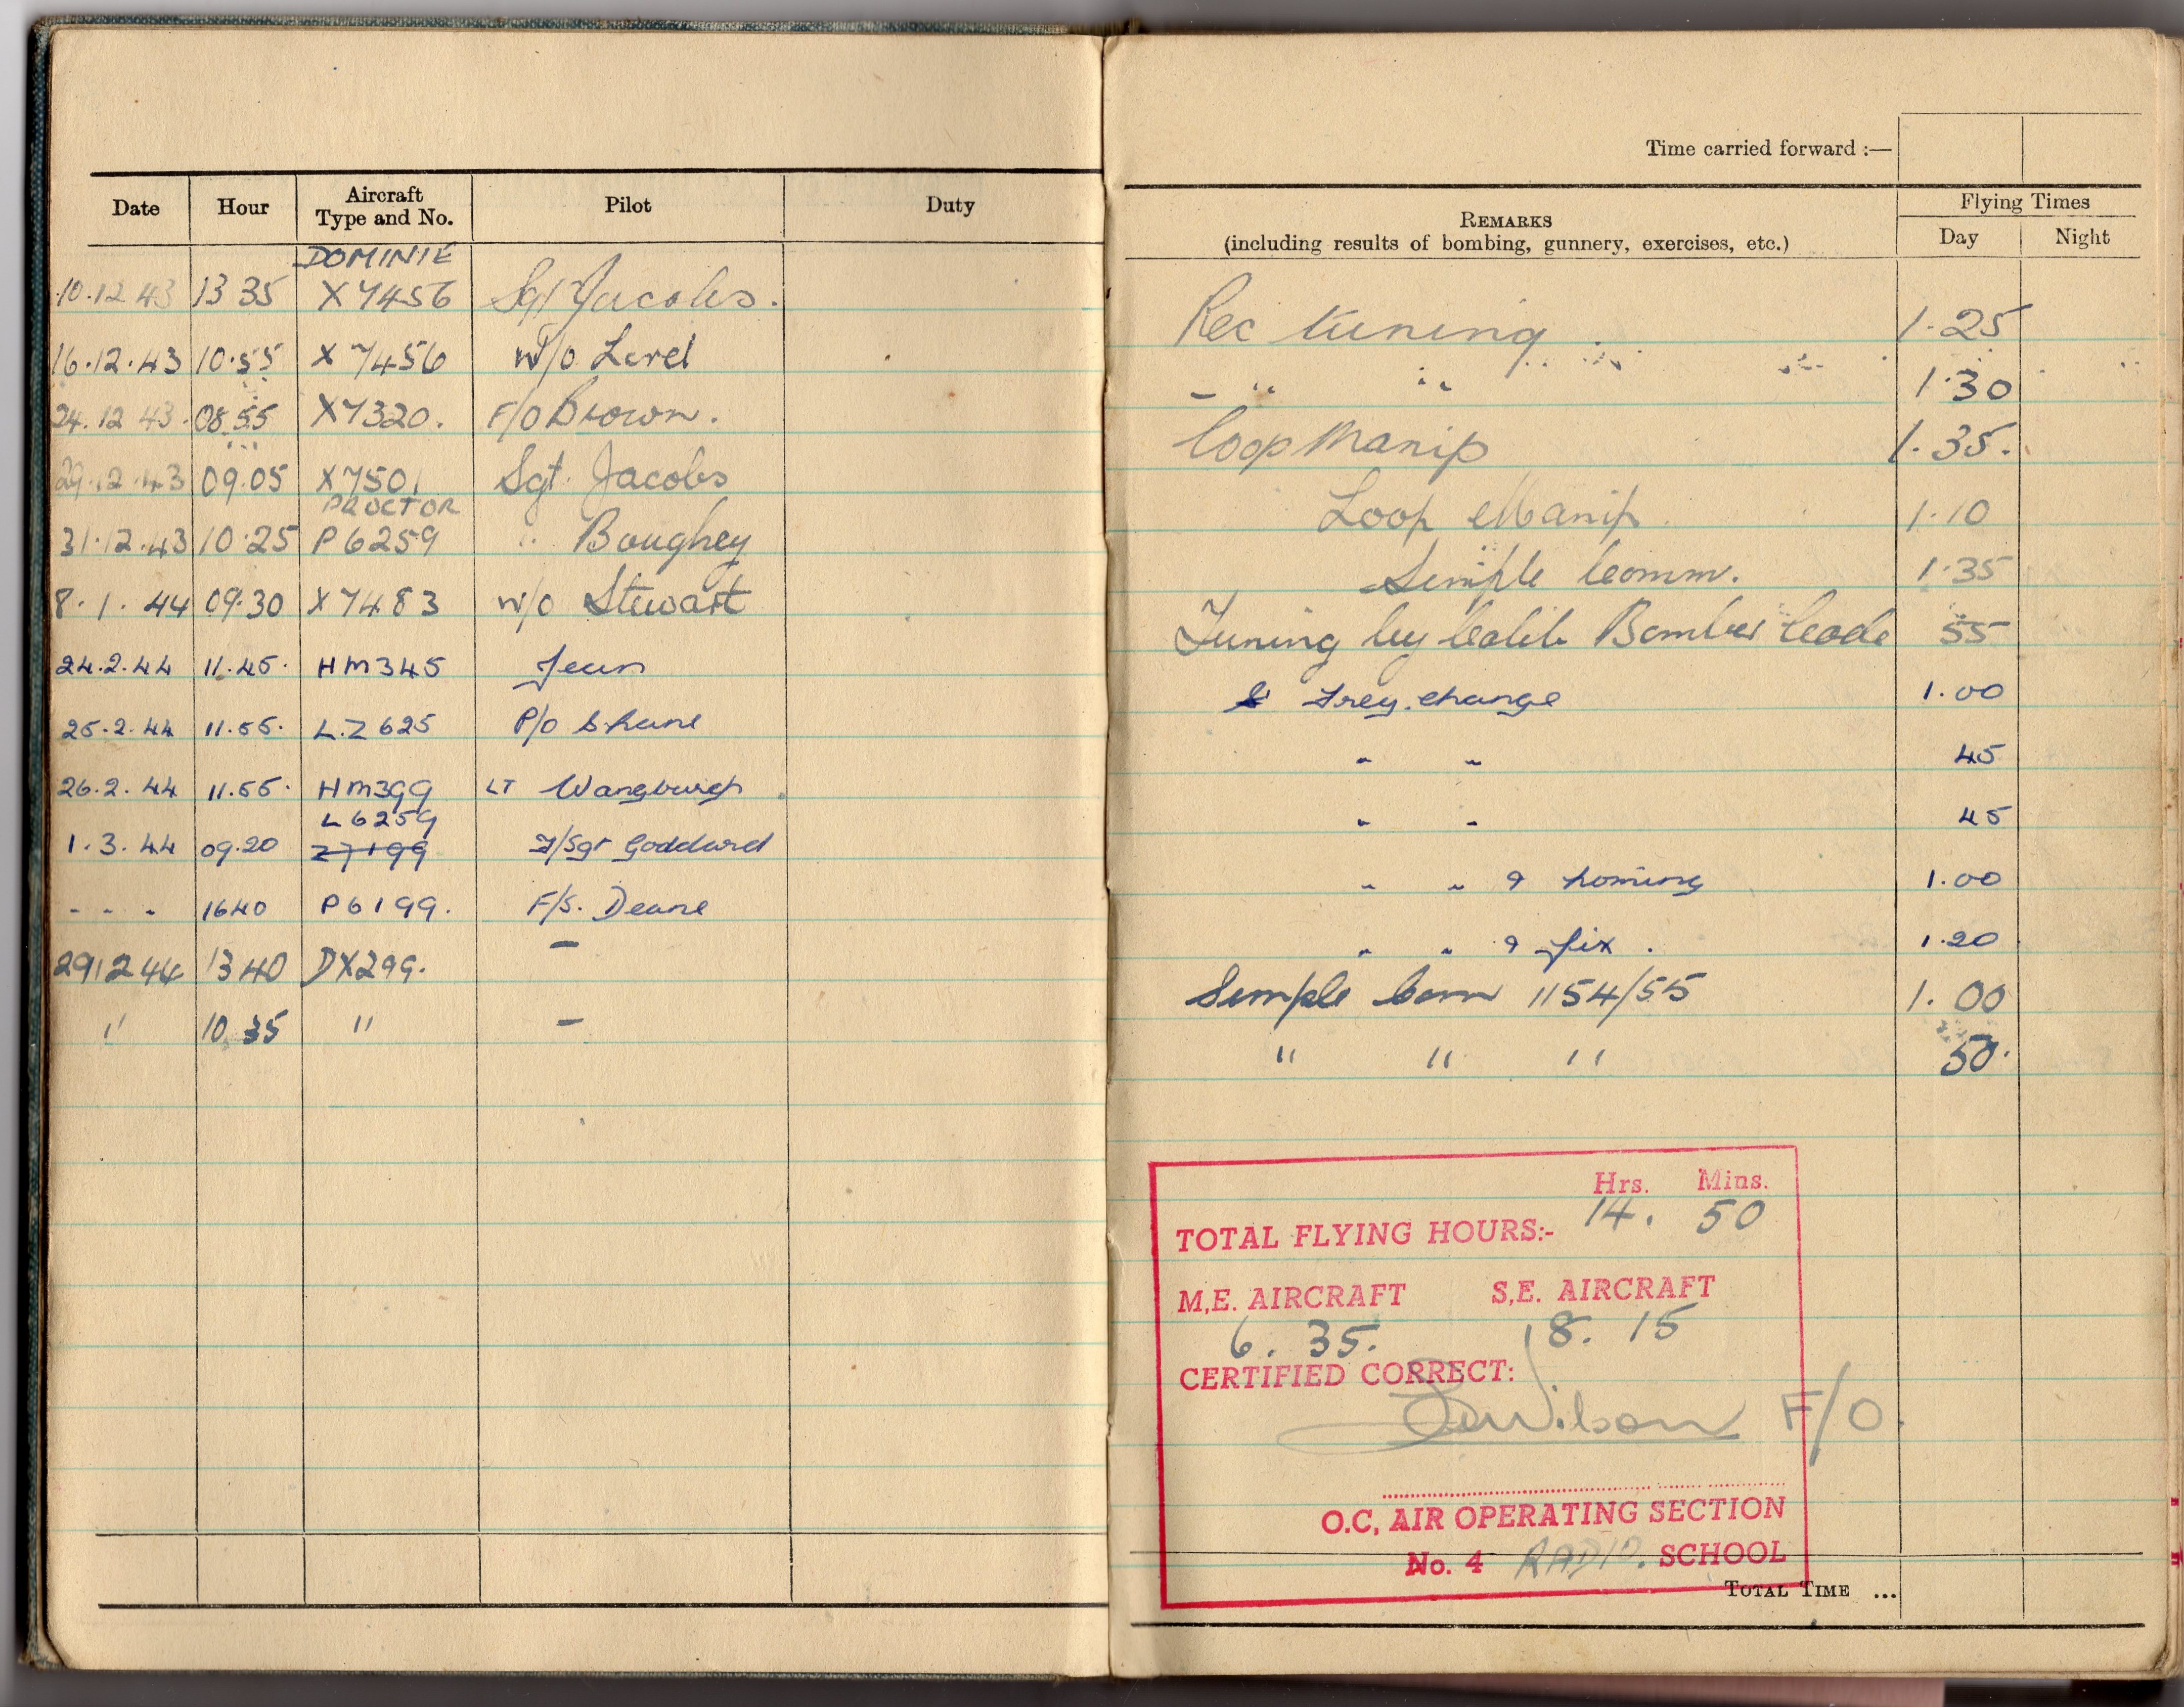 Time carried forward :—
Date Hour Aircraft Type and No. Pilot Duty
REMARKS
(including results of bombing, gunnery, exercises, etc.)
Flying Times
Day Night
DOMINIE
10.12 43 13 35 X7456 Sgt Jacobs. Rec tuning 1.25
16.12.43 10.55 X7456 W/O - " " 1.30
24.12 43. 08.55 X7320. F/O Brown. Loop Manip 1.35.
29.12.43 09.05 X7501 Sgt. Jacobs Loop Manip 1.10
PROCTOR
31.12.43 10.25 P6259 " Boughey Simple Comm. 1.35
8.1.44 09.30 X7483 W/O Stewart Tuning by Calib Bomber Code 55
24.2.44 11.45. HM345 Freq. change 1.00
25.2.44 11.55. LZ625 P/O " " 45
26.2.44 11.55. HM399 LT " " 45
L6259
1.3.44 09.20 Z7199 F/Sgt Goddard " " & homing 1.00
- - - 1640 P6199. F/S. Deane " " & fix. 1.20
29 2 44 13 40 DX299. — Simple Com 1154/55 1.00
" 10 35 " — " " " 50.
Hrs. Mins.
TOTAL FLYING HOURS:- 14. 50
M.E. AIRCRAFT S.E. AIRCRAFT
6. 35. 8. 15
CERTIFIED CORRECT:
Wilson F/O.
O.C. AIR OPERATING SECTION
No. 4 RADIO. SCHOOL
TOTAL TIME ...